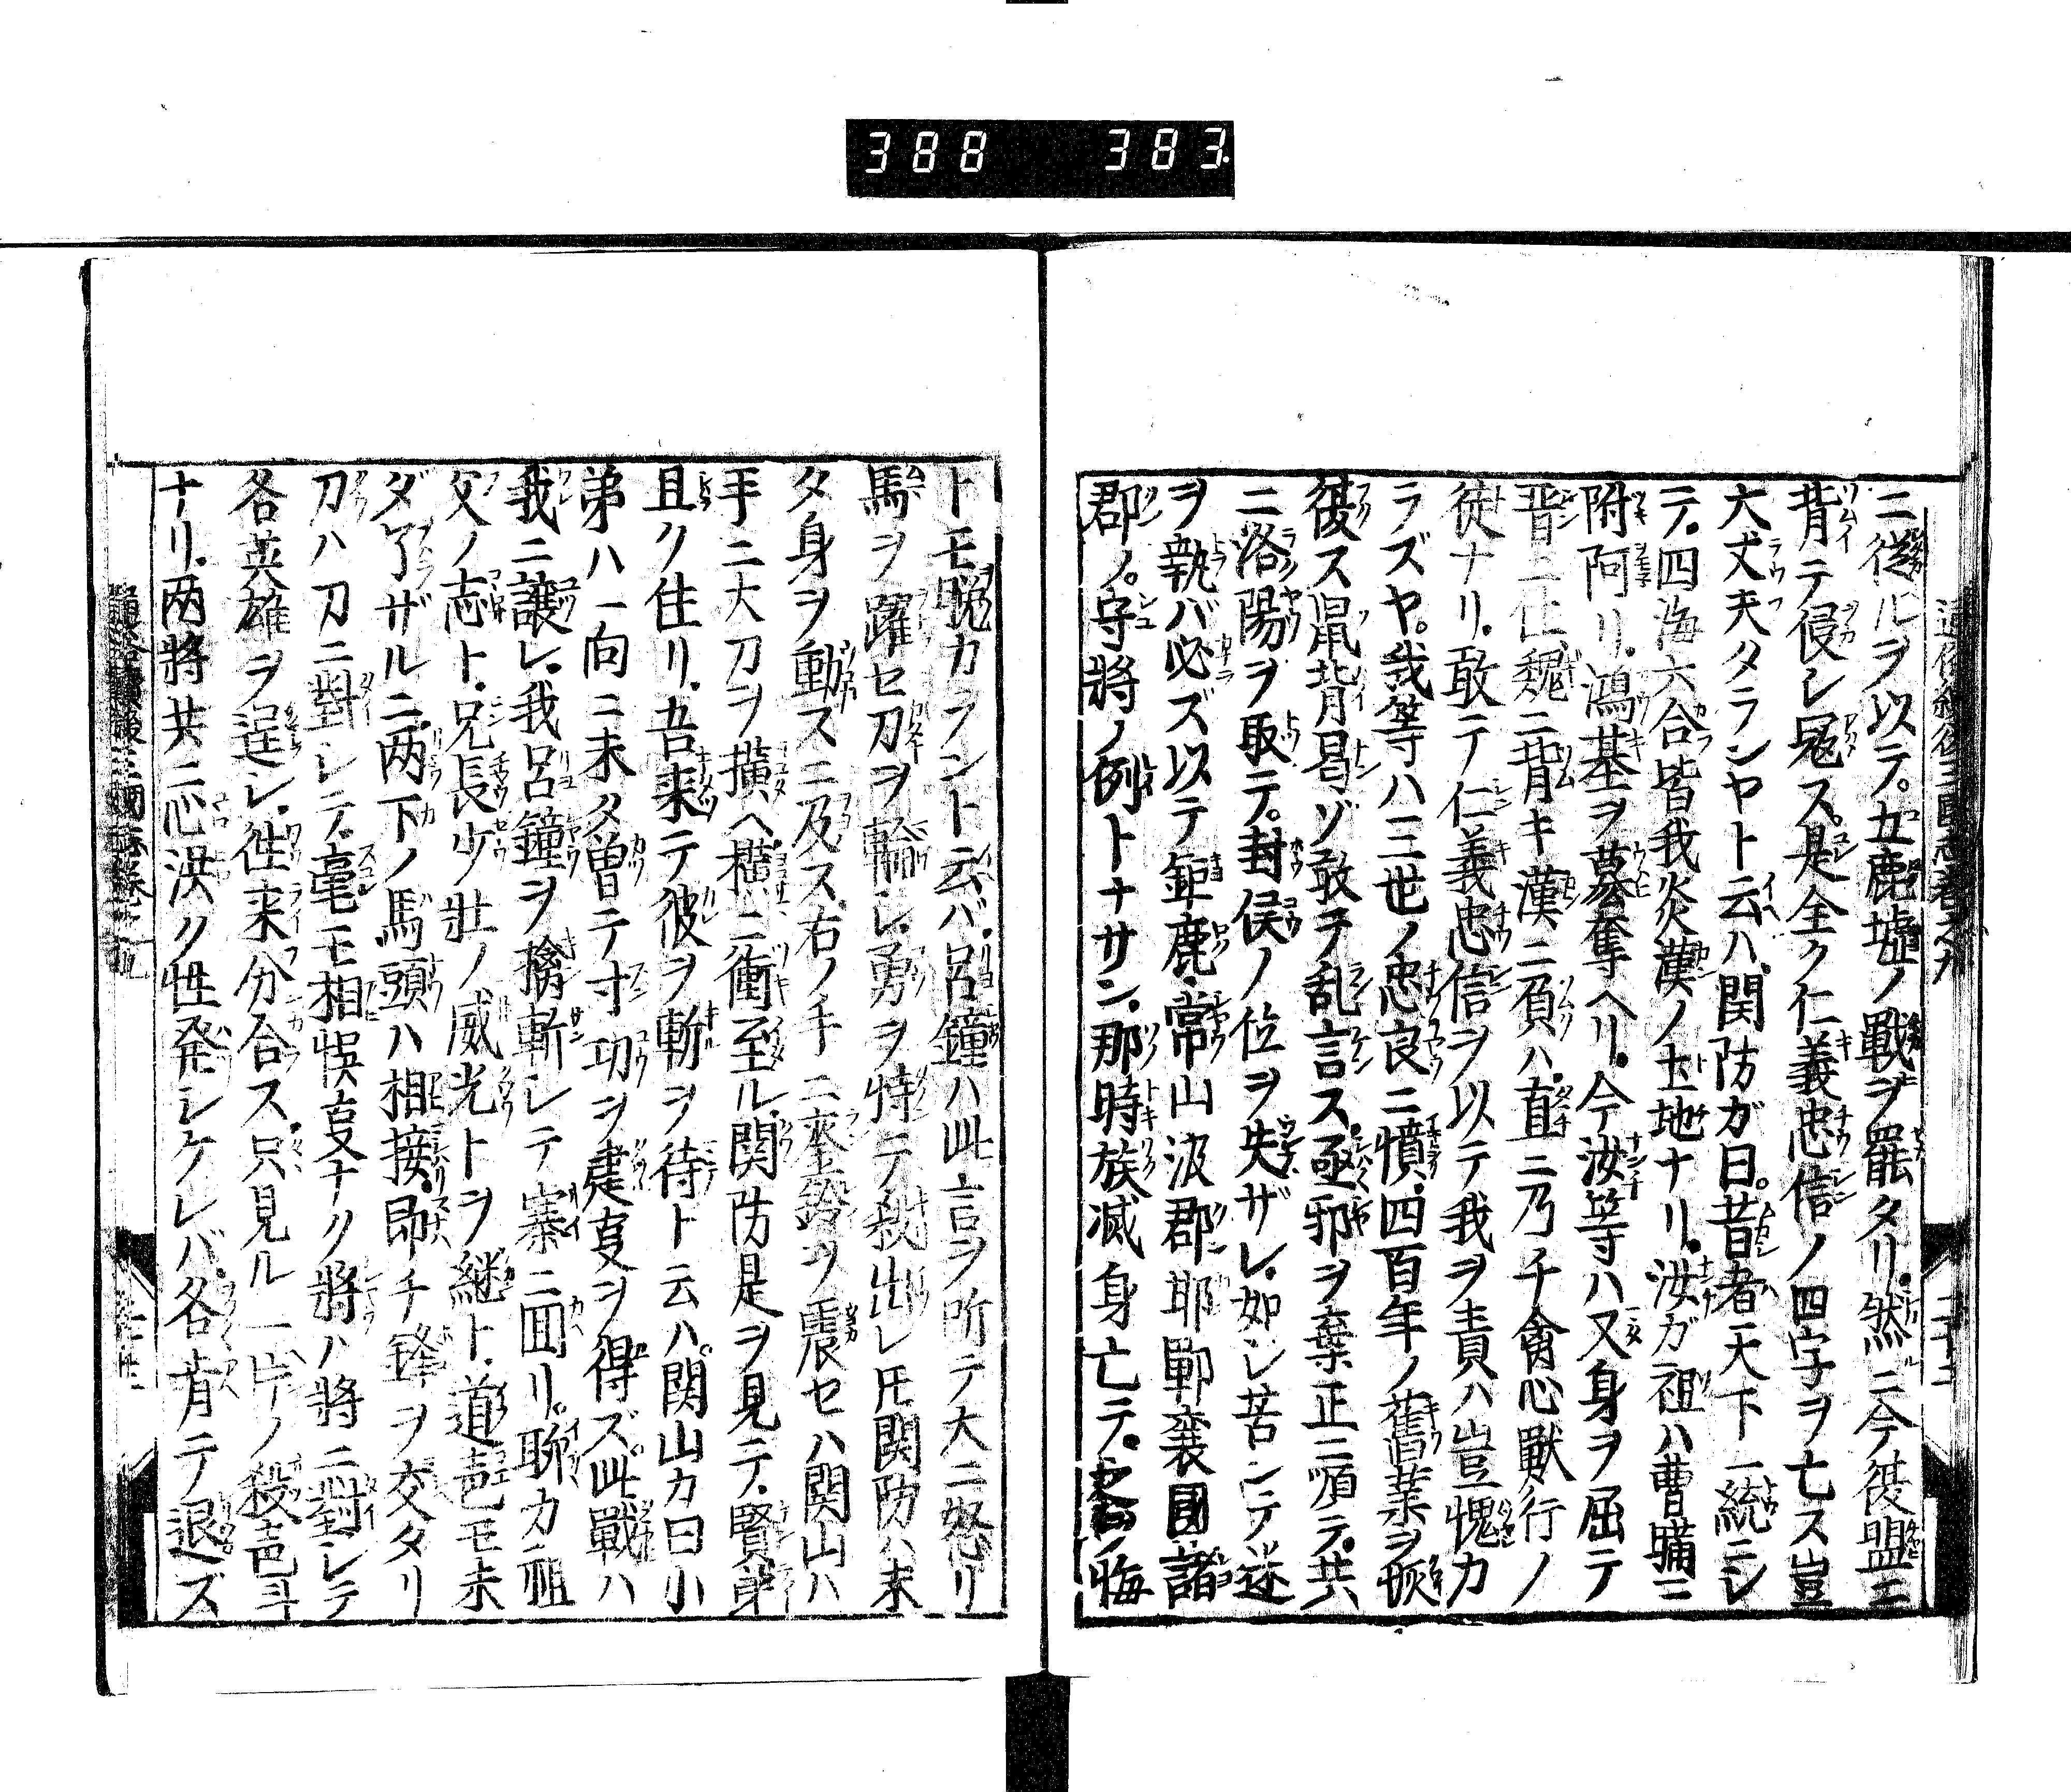 388 383.
ニ從ルヲ以テ。五鹿墟ノ戰ヲ罷タリ。然ニ今復盟ニ
背テ侵シ冦ス。是全ク仁義忠信ノ四字ヲ亡ス豈
大丈夫タランヤト云ハ。関防ガ曰。昔者天下一統ニシ
テ。四海六合皆我炎漢ノ土地ナリ。汝ガ祖ハ曹驕ニ
附阿リ。鴻基ヲ簒奪ヘリ。今汝等ハ又身ヲ屈テ
晋ニ仕魏ニ背キ漢ニ負ハ。直ニ乃チ禽心獣行ノ
徒ナリ。敢テ仁義忠信ヲ以テ我ヲ責ハ豈愧カ
ラズヤ。我等ハ三世ノ忠良ニ憤。四百年ノ舊業ヲ恢
復ス。鼠背曷ゾ敢テ乱言ス。亟邪ヲ棄正ニ順テ。共
ニ洛陽ヲ取テ。封侯ノ位ヲ失ザレ。如シ苦ンデ迷
ヲ執バ必ズ以テ鉅鹿。常山汲郡耶鄲襄國諸
郡ノ。守將ノ例トナサン。那時族滅身亡テ。悔
トモ晩カラント云バ。呂鐘ハ此言ヲ所テ大ニ怒リ
馬ヲ躍セ刀ヲ輪シ。勇ヲ恃テ殺出レ𪜈関防ハ未
タ身ヲ動スニ及ス。右ノ手ニ鈴ヲ震セハ関山ハ
手ニ大刀ヲ擴ヘ。横ニ衝至ル。関防是ヲ見テ。賢弟
且ク住リ。吾来テ彼ヲ斬ヲ待ト云ハ。関山カ曰小
弟ハ一向ニ未タ曽テ寸功ヲ建㕝ヲ得ズ。此戰ハ
我ニ譲レ。我呂鐘ヲ擒斬シテ寨ニ囬リ。聊カ祖
父ノ志ト。兄長少壯ノ威光トヲ継ト。道声モ未
ダ了ザルニ。两下ノ馬頭ハ相接。即チ鋒ヲ交タリ
刀ハ刀ニ對シテ。毫モ相悞㕝ナク將ハ將ニ對シテ
各英雄ヲ逞シ。徃来分合ス。只見ル一片ノ殺声斗
ナリ。两將共ニ心洪ク性発シケレバ。各肯テ退ズ